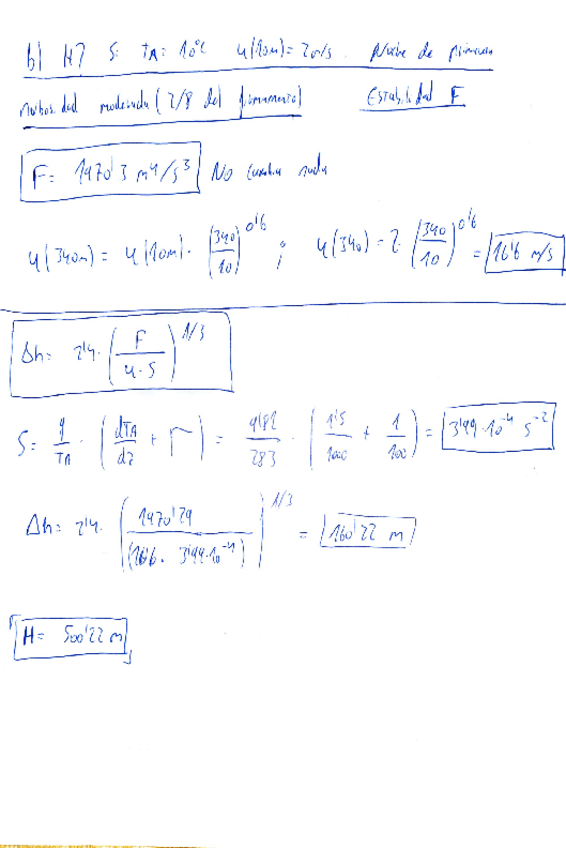 b) H? Si TA = 10ºC u(10m) = 2m/s. Noche de primavera
nubosidad moderada (2/8 del firmamento) Estabilidad F
F = 1970'3 m4/s3 No cambia nada
u(340m) = u(10m) · (340/10)^0'6 ; u(340) = 2 · (340/10)^0'6 = 16'6 m/s
Δh = 2'4 · (F / u·S)^1/3
S = g/TA · (dTA/dz + Γ) = 9'81/283 · (1'5/1000 + 1/100) = 3'99·10^-4 s^-2
Δh = 2'4 · (1970'29 / (16'6 · 3'99·10^-4))^1/3 = 160'22 m
H = 500'22 m